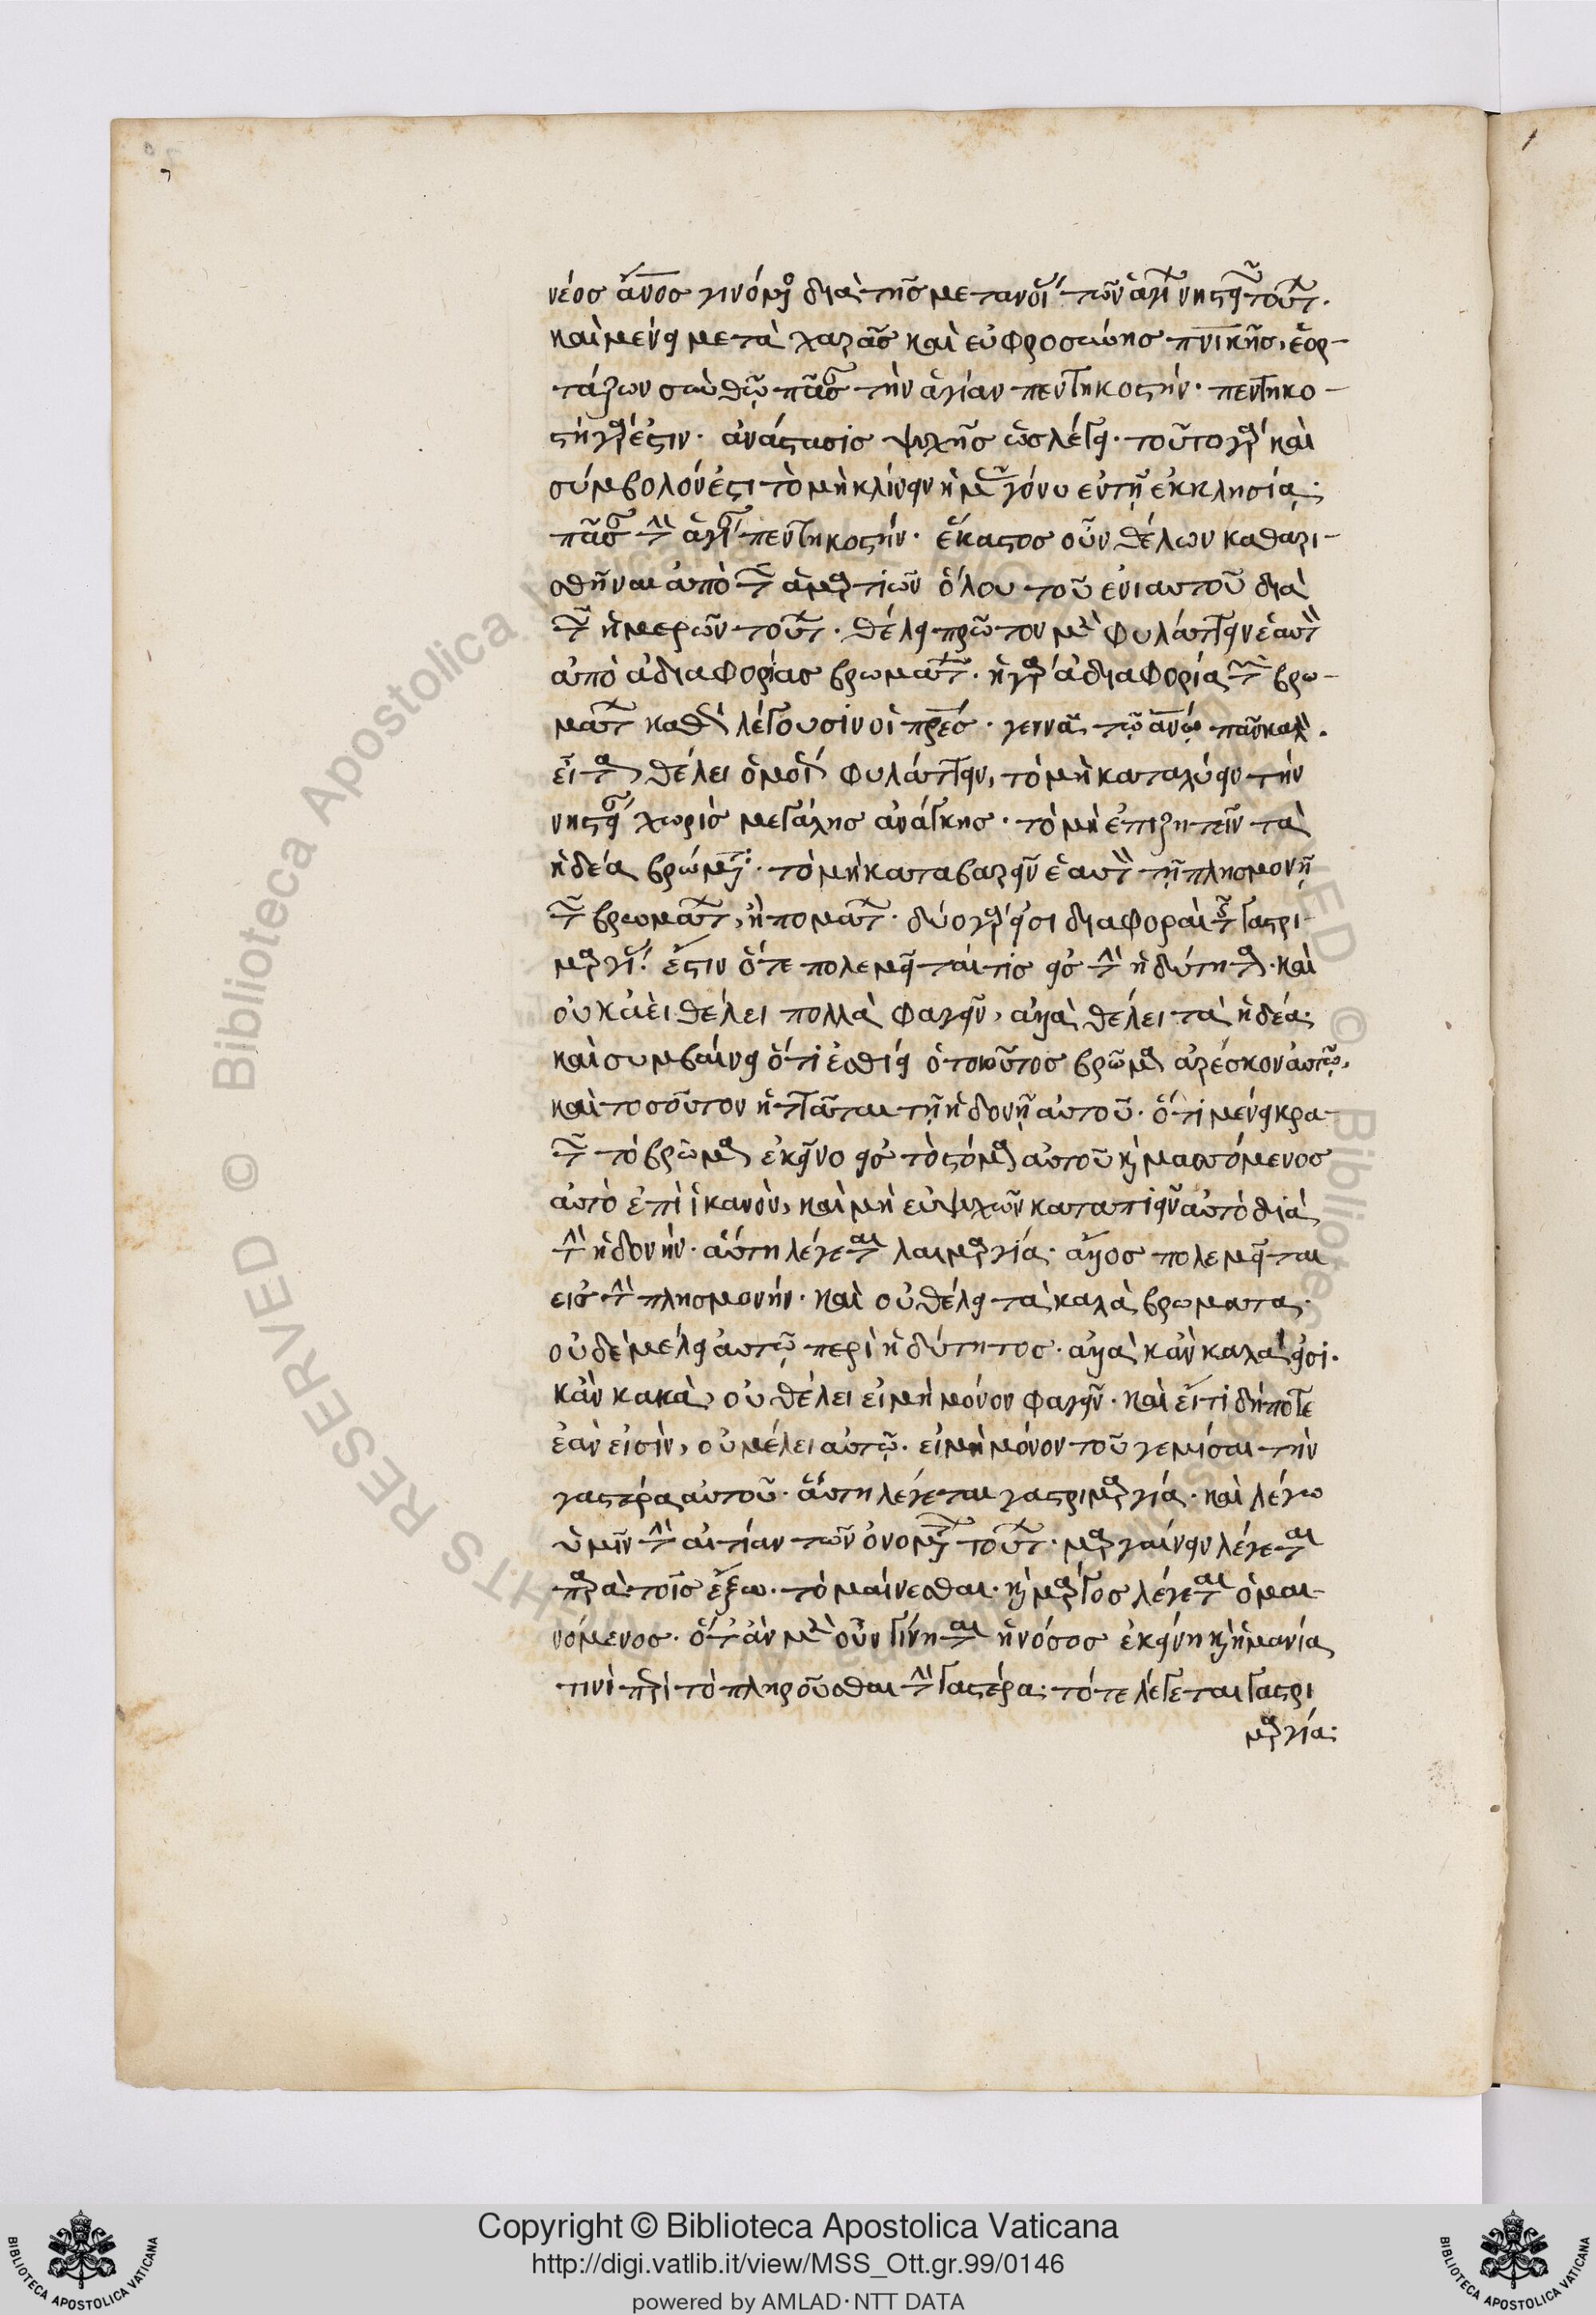 νέος ἄνος γινόμενος διὰ τῆς μετανοίας τῶν ἁγίων νηστειῶν τούτων.
καὶ μένει μετὰ χαρᾶς καὶ εὐφροσύνης πνικῆς, ἑορ-
τάζων σὺν θῶ πᾶσαν τὴν ἁγίαν πεντηκοστήν· πεντηκο-
στὴ γάρ ἐστιν· ἀνάστασις ψυχῆς ὡς λέγει· τοῦτο γὰρ καὶ
σύμβολόν ἐστι τὸ μὴ κλίνειν ἡμᾶς γόνυ ἐν τῇ ἐκκλησίᾳ·
πᾶσαν τὴν ἁγίαν πεντηκοστήν· ἕκαστος οὖν θέλων καθαρι-
σθῆναι ἀπὸ τῶν ἁμαρτιῶν ὅλου τοῦ ἐνιαυτοῦ διὰ
τῶν ἡμερῶν τούτων. θέλει πρῶτον μὲν φυλάττειν ἑαυτὸν
ἀπὸ ἀδιαφορίας βρωμάτων. ἡ γὰρ ἀδιαφορία τῶν βρω-
μάτων καθὼς λέγουσιν οἱ πρες· γεννᾶ τῷ ἀνῳ πᾶν κακόν.
εἶτα θέλει ὁμοίως φυλάττειν, τὸ μὴ καταλύειν τὴν
νηστείαν χωρὶς μεγάλης ἀνάγκης· τὸ μὴ ἐπιζητεῖν τὰ
ἡδέα βρώματα· τὸ μὴ καταβαρεῖν ἑαυτὸν τῇ πλησμονῇ
τῶν βρωμάτων, ἢ πομάτων· δύο γάρ εἰσι διαφοραὶ τῆς γαστρι-
μαργίας· ἔστιν ὅτε πολεμεῖταί τις εἰς τὴν ἡδύτητα· καὶ
οὐκ ἀεὶ θέλει πολλὰ φαγεῖν, ἀλλὰ θέλει τὰ ἡδέα·
καὶ συμβαίνει ὅτι ἐσθίει ὁ τοιοῦτος βρῶμα ἀρέσκον αὐτῷ,
καὶ τοσοῦτον ἡττᾶται τῇ ἡδονῇ αὐτοῦ· ὅτι μένει κρα-
τῶν τὸ βρῶμα ἐκεῖνο εἰς τὸ στόμα αὐτοῦ καὶ μασσόμενος
αὐτὸ ἐπὶ ἱκανὸν, καὶ μὴ εὐψυχῶν καταπιεῖν αὐτὸ διὰ
τὴν ἡδονήν· αὕτη λέγεται λαιμαργία· ἄλλος πολεμεῖται
εἰς τὴν πλησμονήν· καὶ οὐ θέλει τὰ καλὰ βρώματα·
οὐδὲ μέλει αὐτῷ περὶ ἡδύτητος· ἀλλὰ κἂν καλὰ εἰσί·
κἂν κακὰ, οὐ θέλει εἰ μὴ μόνον φαγεῖν· καὶ εἴ τι δήποτε
ἐὰν εἰσὶν, οὐ μέλει αὐτῷ· εἰ μὴ μόνον τοῦ γεμίσαι τὴν
γαστέρα αὐτοῦ· αὕτη λέγεται γαστριμαργία· καὶ λέγω
ὑμῖν τὴν αἰτίαν τῶν ὀνομάτων τούτων· μαργαίνειν λέγεται
παρὰ τοῖς ἔξω· τὸ μαίνεσθαι· καὶ μάργος λέγεται ὁ μαι-
νόμενος· ὅταν μὲν οὖν γίνηται ἡ νόσος ἐκείνη καὶ ἡ μανία
τινὶ περὶ τὸ πληροῦσθαι τὴν γαστέρα· τότε λέγεται γαστρι
μαργία·
Copyright © Biblioteca Apostolica Vaticana
http://digi.vatlib.it/view/MSS_Ott.gr.99/0146
powered by AMLAD·NTT DATA